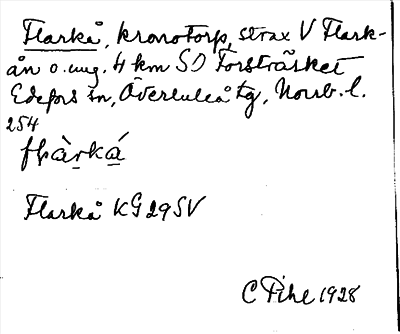 Flarkå, kronotorp, strax V Flark-
ån o. ung. 4 km SO Forsträsket
Edefors sn, Överluleå tg, Norrb. l.
254
flàrká
Flarkå KG 29 SV
C Pihl 1928